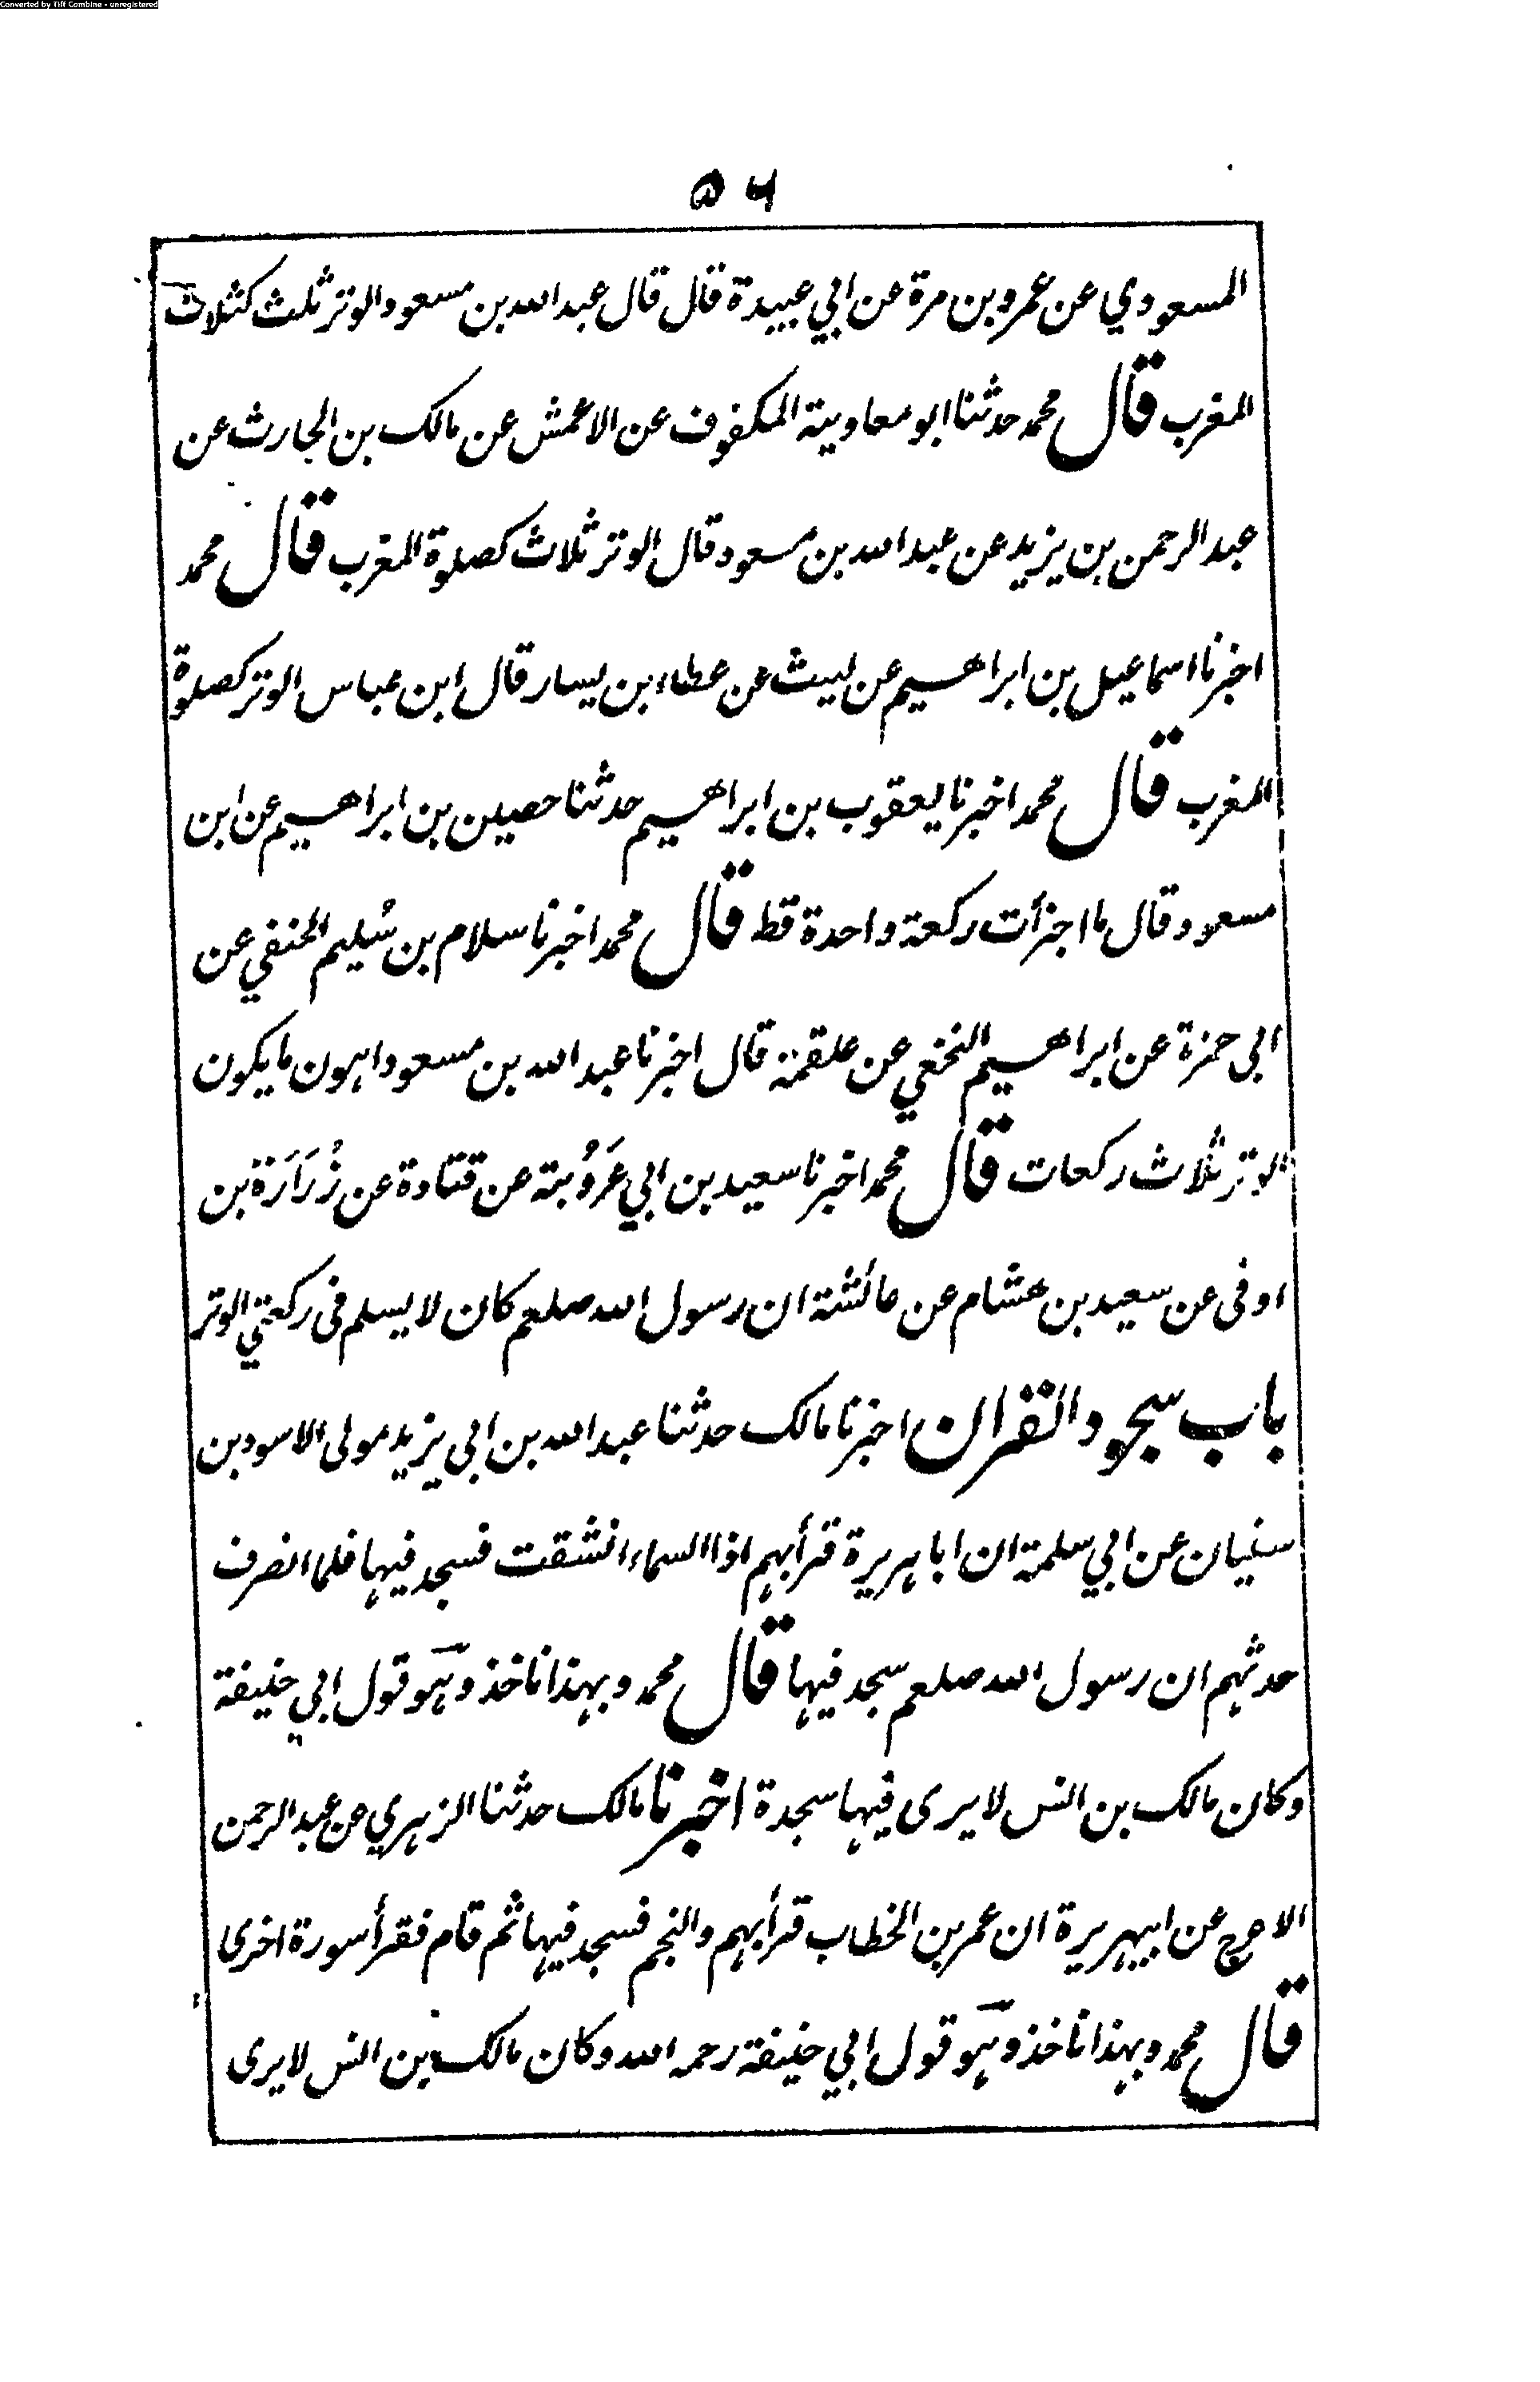 Converted by Tiff Combine - unregistered
۵۶
المسعودي عن عمرو بن مرة عن ابي عبيدة قال قال عبد الله بن مسعود الوتر ثلث كثلاث
المغرب قال محمد حدثنا ابو معاوية المكفوف عن الاعمش عن مالك بن الحارث عن
عبد الرحمن بن يزيد عن عبد الله بن مسعود قال الوتر ثلاث كصلوة المغرب قال محمد
اخبرنا اسماعيل بن ابراهيم عن ليث عن عطاء بن يسار قال ابن عباس الوتر كصلوة
المغرب قال محمد اخبرنا يعقوب بن ابراهيم حدثنا حصين بن ابراهيم عن ابن
مسعود قال ما اجزأت ركعة واحدة قط قال محمد اخبرنا سلام بن سُليم الحنفي عن
ابى حمزة عن ابراهيم النخعي عن علقمة قال اخبرنا عبد الله بن مسعود اهون ما يكون
الوتر ثلاث ركعات قال محمد اخبرنا سعيد بن ابي عَرُوْبة عن قتادة عن زُرَارَة بن
اوفى عن سعيد بن هشام عن عائشة ان رسول الله صلعم كان لا يسلم فى ركعتي الوتر
باب سجود القران اخبرنا مالك حدثنا عبد الله بن ابى يزيد مولى الاسود بن
سفيان عن ابي سلمة ان ابا هريرة قرأ بهم اذا السماء انشقت فسجد فيها فلما انصرف
حدثهم ان رسول الله صلعم سجد فيها قال محمد و بهذا ناخذ وهو قول ابي حنيفة
وكان مالك بن انس لا يرى فيها سجدة اخبرنا مالك حدثنا الزهري عن عبد الرحمن
الاعرج عن ابيهريرة ان عمر بن الخطاب قرأ بهم والنجم فسجد فيها ثم قام فقرأ سورة اخرى
قال محمد و بهذا ناخذ وهو قول ابي حنيفة رحمه الله وكان مالك بن انس لا يرى